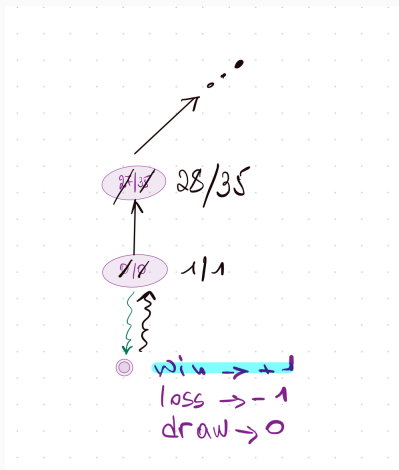 28/35
0/0 1/1
win → +1
loss → -1
draw → 0